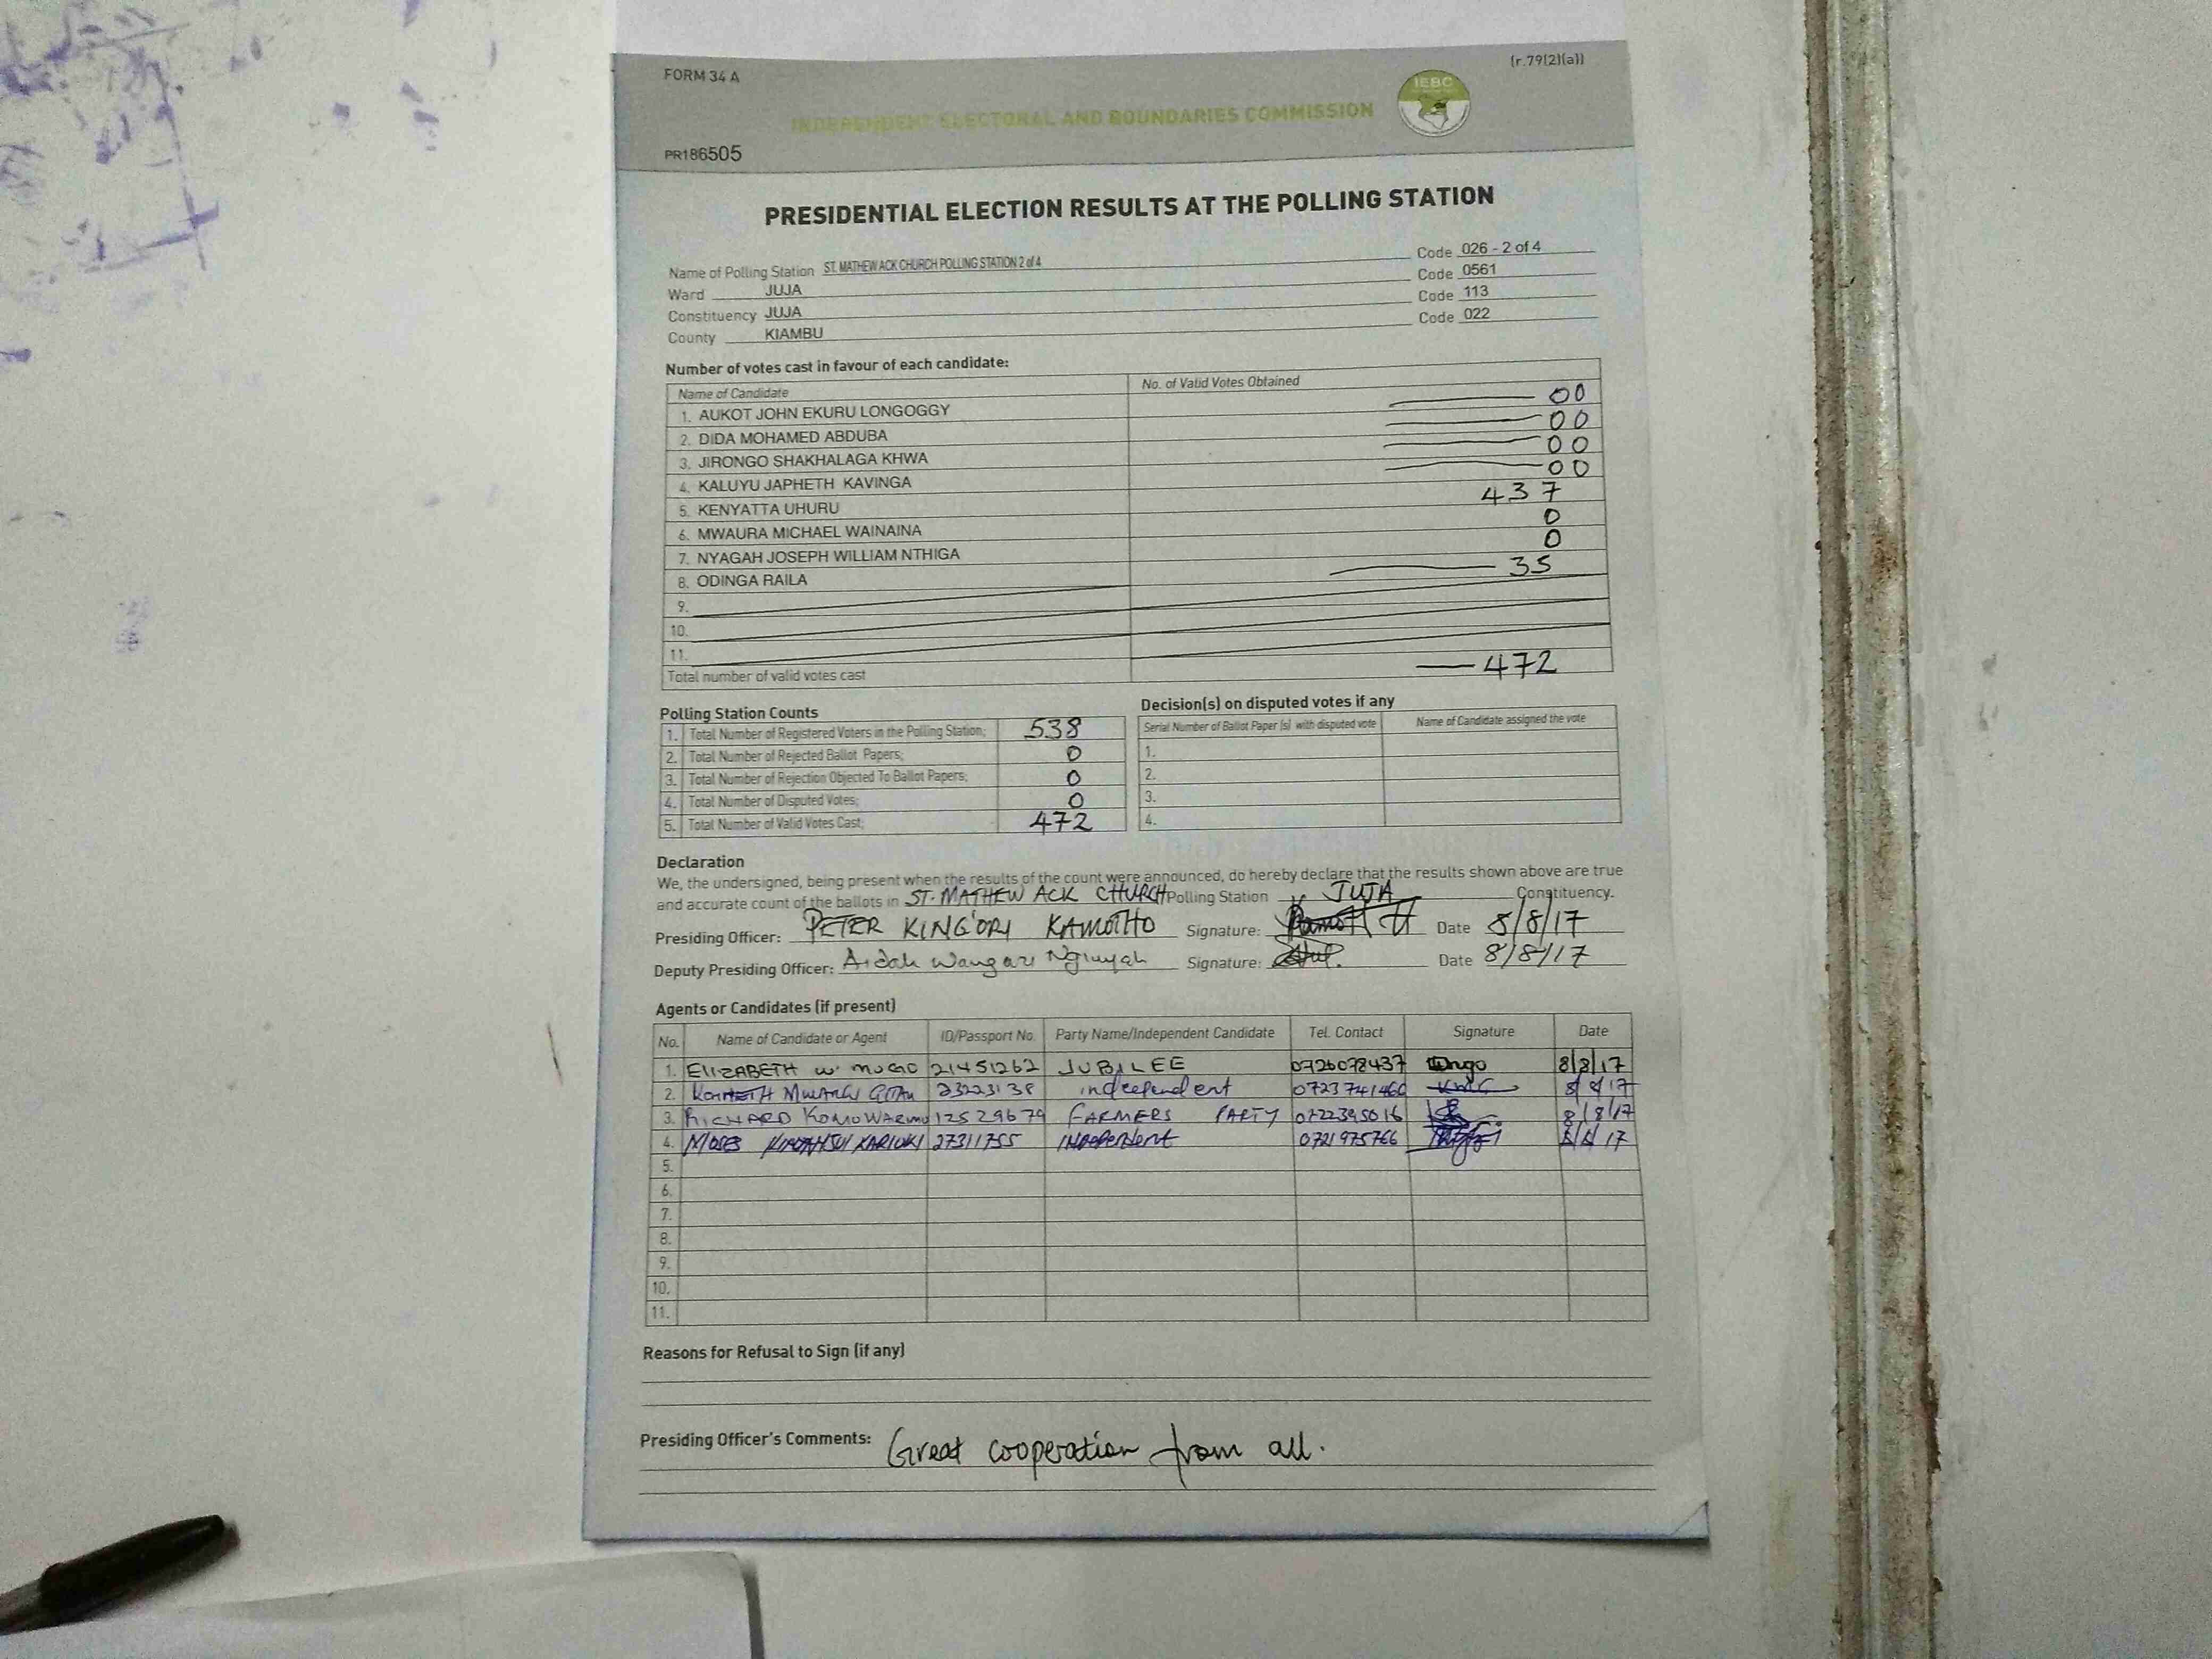 FORM 34 A
(r.79(2)(a))
IEBC
INDEPENDENT ELECTORAL AND BOUNDARIES COMMISSION
PR186505
PRESIDENTIAL ELECTION RESULTS AT THE POLLING STATION
Name of Polling Station ST. MATHEW ACK CHURCH POLLING STATION 2 of 4 Code 026 - 2 of 4
Ward JUJA Code 0561
Constituency JUJA Code 113
County KIAMBU Code 022
Number of votes cast in favour of each candidate:
Name of Candidate No. of Valid Votes Obtained
1. AUKOT JOHN EKURU LONGOGGY 00
2. DIDA MOHAMED ABDUBA 00
3. JIRONGO SHAKHALAGA KHWA 00
4. KALUYU JAPHETH KAVINGA 00
5. KENYATTA UHURU 437
6. MWAURA MICHAEL WAINAINA 0
7. NYAGAH JOSEPH WILLIAM NTHIGA 0
8. ODINGA RAILA 35
9.
10.
11.
Total number of valid votes cast 472
Polling Station Counts
1. Total Number of Registered Voters in the Polling Station; 538
2. Total Number of Rejected Ballot Papers; 0
3. Total Number of Rejection Objected To Ballot Papers; 0
4. Total Number of Disputed Votes; 0
5. Total Number of Valid Votes Cast; 472
Decision(s) on disputed votes if any
Serial Number of Ballot Paper (s) with disputed vote Name of Candidate assigned the vote
1.
2.
3.
4.
Declaration
We, the undersigned, being present when the results of the count were announced, do hereby declare that the results shown above are true
and accurate count of the ballots in ST. MATHEW ACK CHURCH Polling Station JUJA Constituency.
Presiding Officer: PETER KING'ORI KAMOTHO Signature: Date 8/8/17
Deputy Presiding Officer: Aidah Wangari Signature: Date 8/8/17
Agents or Candidates (if present)
No. Name of Candidate or Agent ID/Passport No. Party Name/Independent Candidate Tel. Contact Signature Date
1. ELIZABETH W. MUGO 21451262 JUBILEE 0726078437 8/8/17
2. MWANGI 23223138 independent 0723741460 8/8/17
3. RICHARD 12529679 FARMERS PARTY 0722395016 8/8/17
4. MOSES KARIUKI 27311755 INDEPENDENT 0721975766 8/8/17
5.
6.
7.
8.
9.
10.
11.
Reasons for Refusal to Sign (if any)
Presiding Officer's Comments: Great cooperation from all.